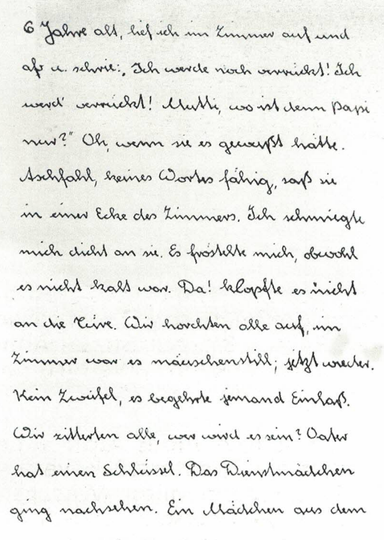 6 Jahre alt, lief ich im Zimmer auf und
ab u. schrie: „Ich werde noch verrückt! Ich
werd' verrückt! Mutti, wo ist denn Papi
nur?" Oh, wenn sie es gewußt hätte.
Aschfahl, keines Wortes fähig, saß sie
in einer Ecke des Zimmers. Ich schmiegte
mich dicht an sie. Es fröstelte mich, obwohl
es nicht kalt war. Da! klopfte es nicht
an die Türe. Wir horchten alle auf, im
Zimmer war es mäuschenstill; jetzt wieder.
Kein Zweifel, es begehrte jemand Einlaß.
Wir zitterten alle, wer wird es sein? Vater
hat einen Schlüssel. Das Dienstmädchen
ging nachsehen. Ein Mädchen aus dem